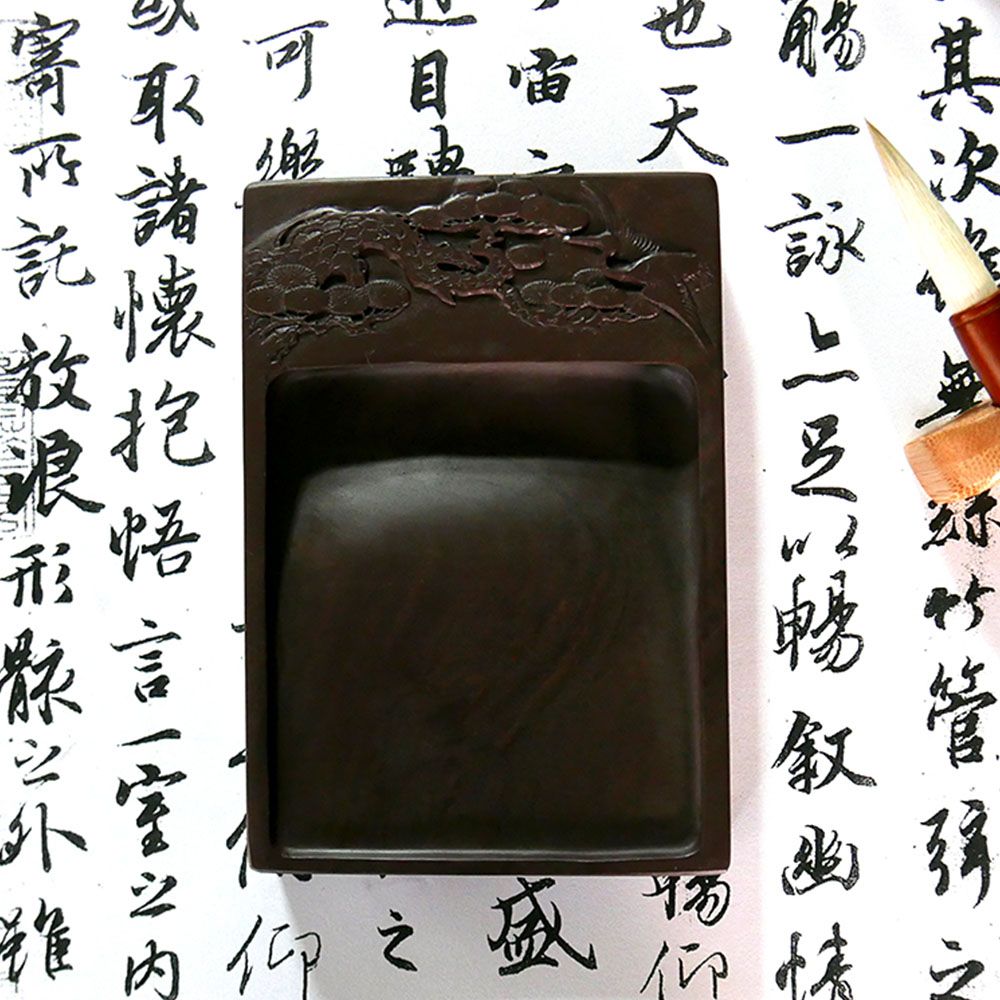 其次雖無絲竹管弦之
觴一詠亦足以暢敘幽情
也天 暢仰
宙 盛
目 之
可樂 仰
或取諸懷抱悟言一室之內
寄所託放浪形骸之外雖